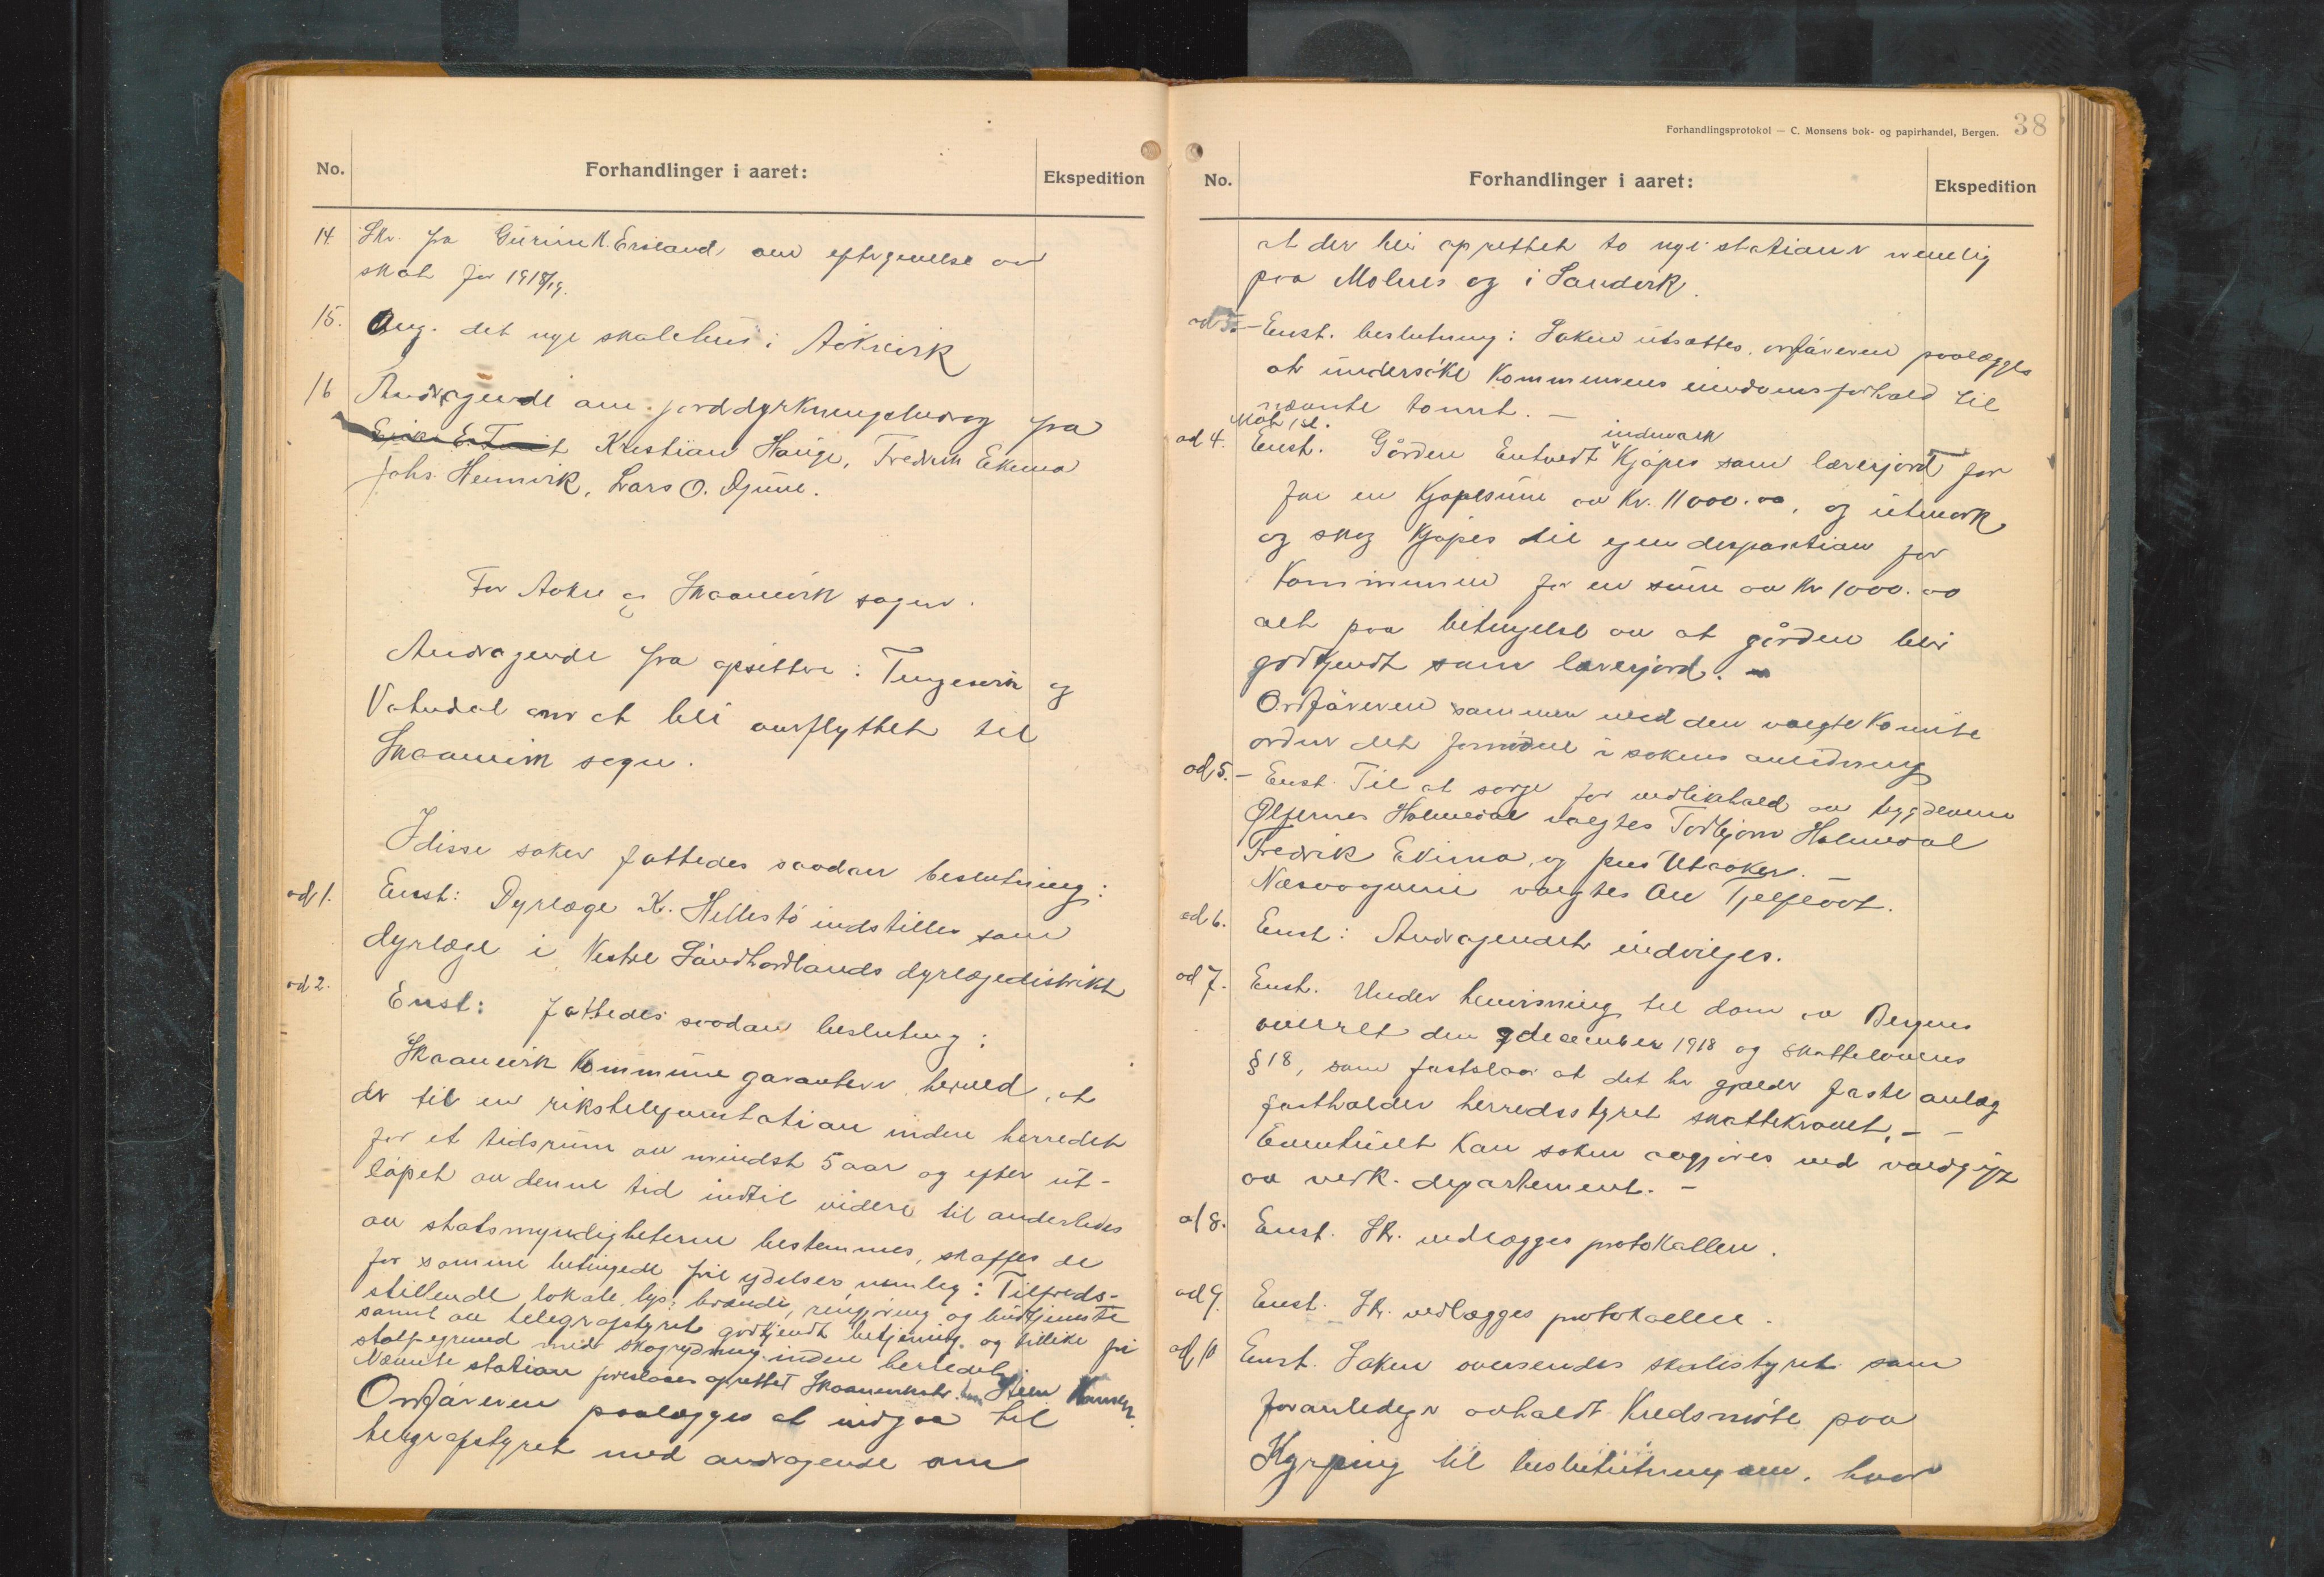 No.
Forhandlinger i aaret:
Ekspedition
14. Skr. fra Gurine K. Ersland, om eftergivelse av
skat for 1918/19.
15. Ang. det nye skolehus i Aakrevik
16 Andragende om jorddyrkningsbidrag fra
Kristian Hauge, Fredrik Ekema
Johs. Heimvik, Lars O. Djune.
For Aakre og Skaanevik sogn.
Andragende fra opsittere: Tungesvik og
Vatndal om at bli overflyttet til
Skaanevik sogn.
I disse saker fattedes saadan beslutning:
ad 1. Enst: Dyrlæge K. Hillestö indstilles som
dyrlæge i Vestre Söndhordlands dyrlægedistrikt
ad 2. Enst: fattedes saadan beslutning:
Skaanevik Kommune garanterer herved, at
der til en rikstelefonstation inden herredet
for et tidsrum av mindst 5 aar og efter ut-
löpet av denne tid indtil videre til anderledes
av statsmyndigheterne bestemmes, skaffes de
for samme betingede frie ydelser nemlig: Tilfreds-
stillende lokale, lys, brænde, rengjöring og budtjeneste
samt av telegrafstyret godkjendt betjening og tillike fri
stolpegrund med skogrydning inden herredet.
Nævnte station foreslaaes oprettet Skaanevikstr. hos Steen Hansen.
Ordföreren paalægges at indgaa til
telegrafstyret med andragende om
Forhandlingsprotokol — C. Monsens bok- og papirhandel, Bergen. 38
No.
Forhandlinger i aaret:
Ekspedition
at der blir oprettet to nye stationer nemlig
paa Molnes og i Sandvik.
ad 3. - Enst. beslutning: Saken utsættes, ordföreren paalægges
at undersöke Kommunens eiendomsforhold til
nævnte tomt. -
ad 4. Mot 1 st.
Enst. Gården Entvedt indmark Kjöpes som lærerjord for
for en Kjöpesum av Kr. 11000.00, og utmark
og skog Kjöpes til egen desposition for
Kommunen for en sum av Kr 1000.00
alt paa betingelse av at gården blir
godkjendt som lærerjord. -
Ordföreren sammen med den valgte Komite
ordner det fornödne i sakens anledning
ad 5. - Enst. Til at sörge for vedlikehold av bygdeveiene
Ölfernes Holmedal valgtes Torbjörn Holmedal
Fredrik Ekema, og Jens Utaaker. -
Næsvaagveie valgtes Ole Tjelflaat.
ad 6. Enst: Andragendet indvilges.
ad 7. Enst. Under henvisning til dom av Bergens
overret den 9 december 1918 og skattelovens
§ 18, som fastslaar at det her gjælder faste anlæg
fastholder herredsstyret skattekravet. -
Eventuelt kan saken avgjöres ved voldgift
av vedk. departement. -
ad 8. Enst. Skr. vedlægges protokollen.
ad 9. Enst. Skr. vedlægges protokollen.
ad 10 Enst. Saken oversendes skolestyret som
foranlediger avholdt Kredsmöte paa
Kyrping til beslutning om, hvor